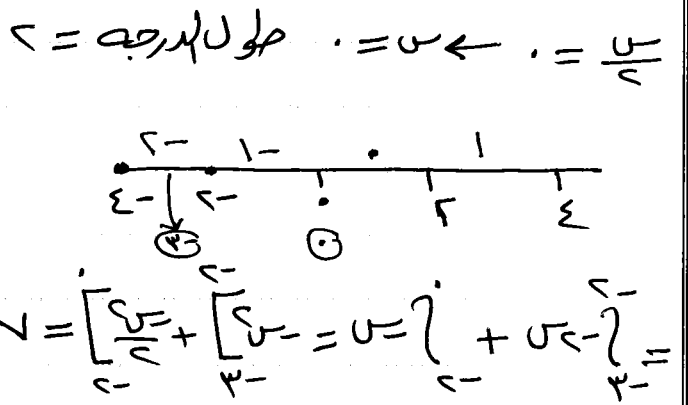 س/٢ = ٠ ← س = ٠ طول الدرجه = ٢
-٢ -١ ٠ ١
-٤ -٢ ٠ ٢ ٤
-٣ ٠
= ∫_{-٣}^{-٢} -٢س + ∫_{-٢}^{٠} -س = -س^٢]_{-٣}^{-٢} + -س^٢/٢]_{-٢}^{٠} = ٧